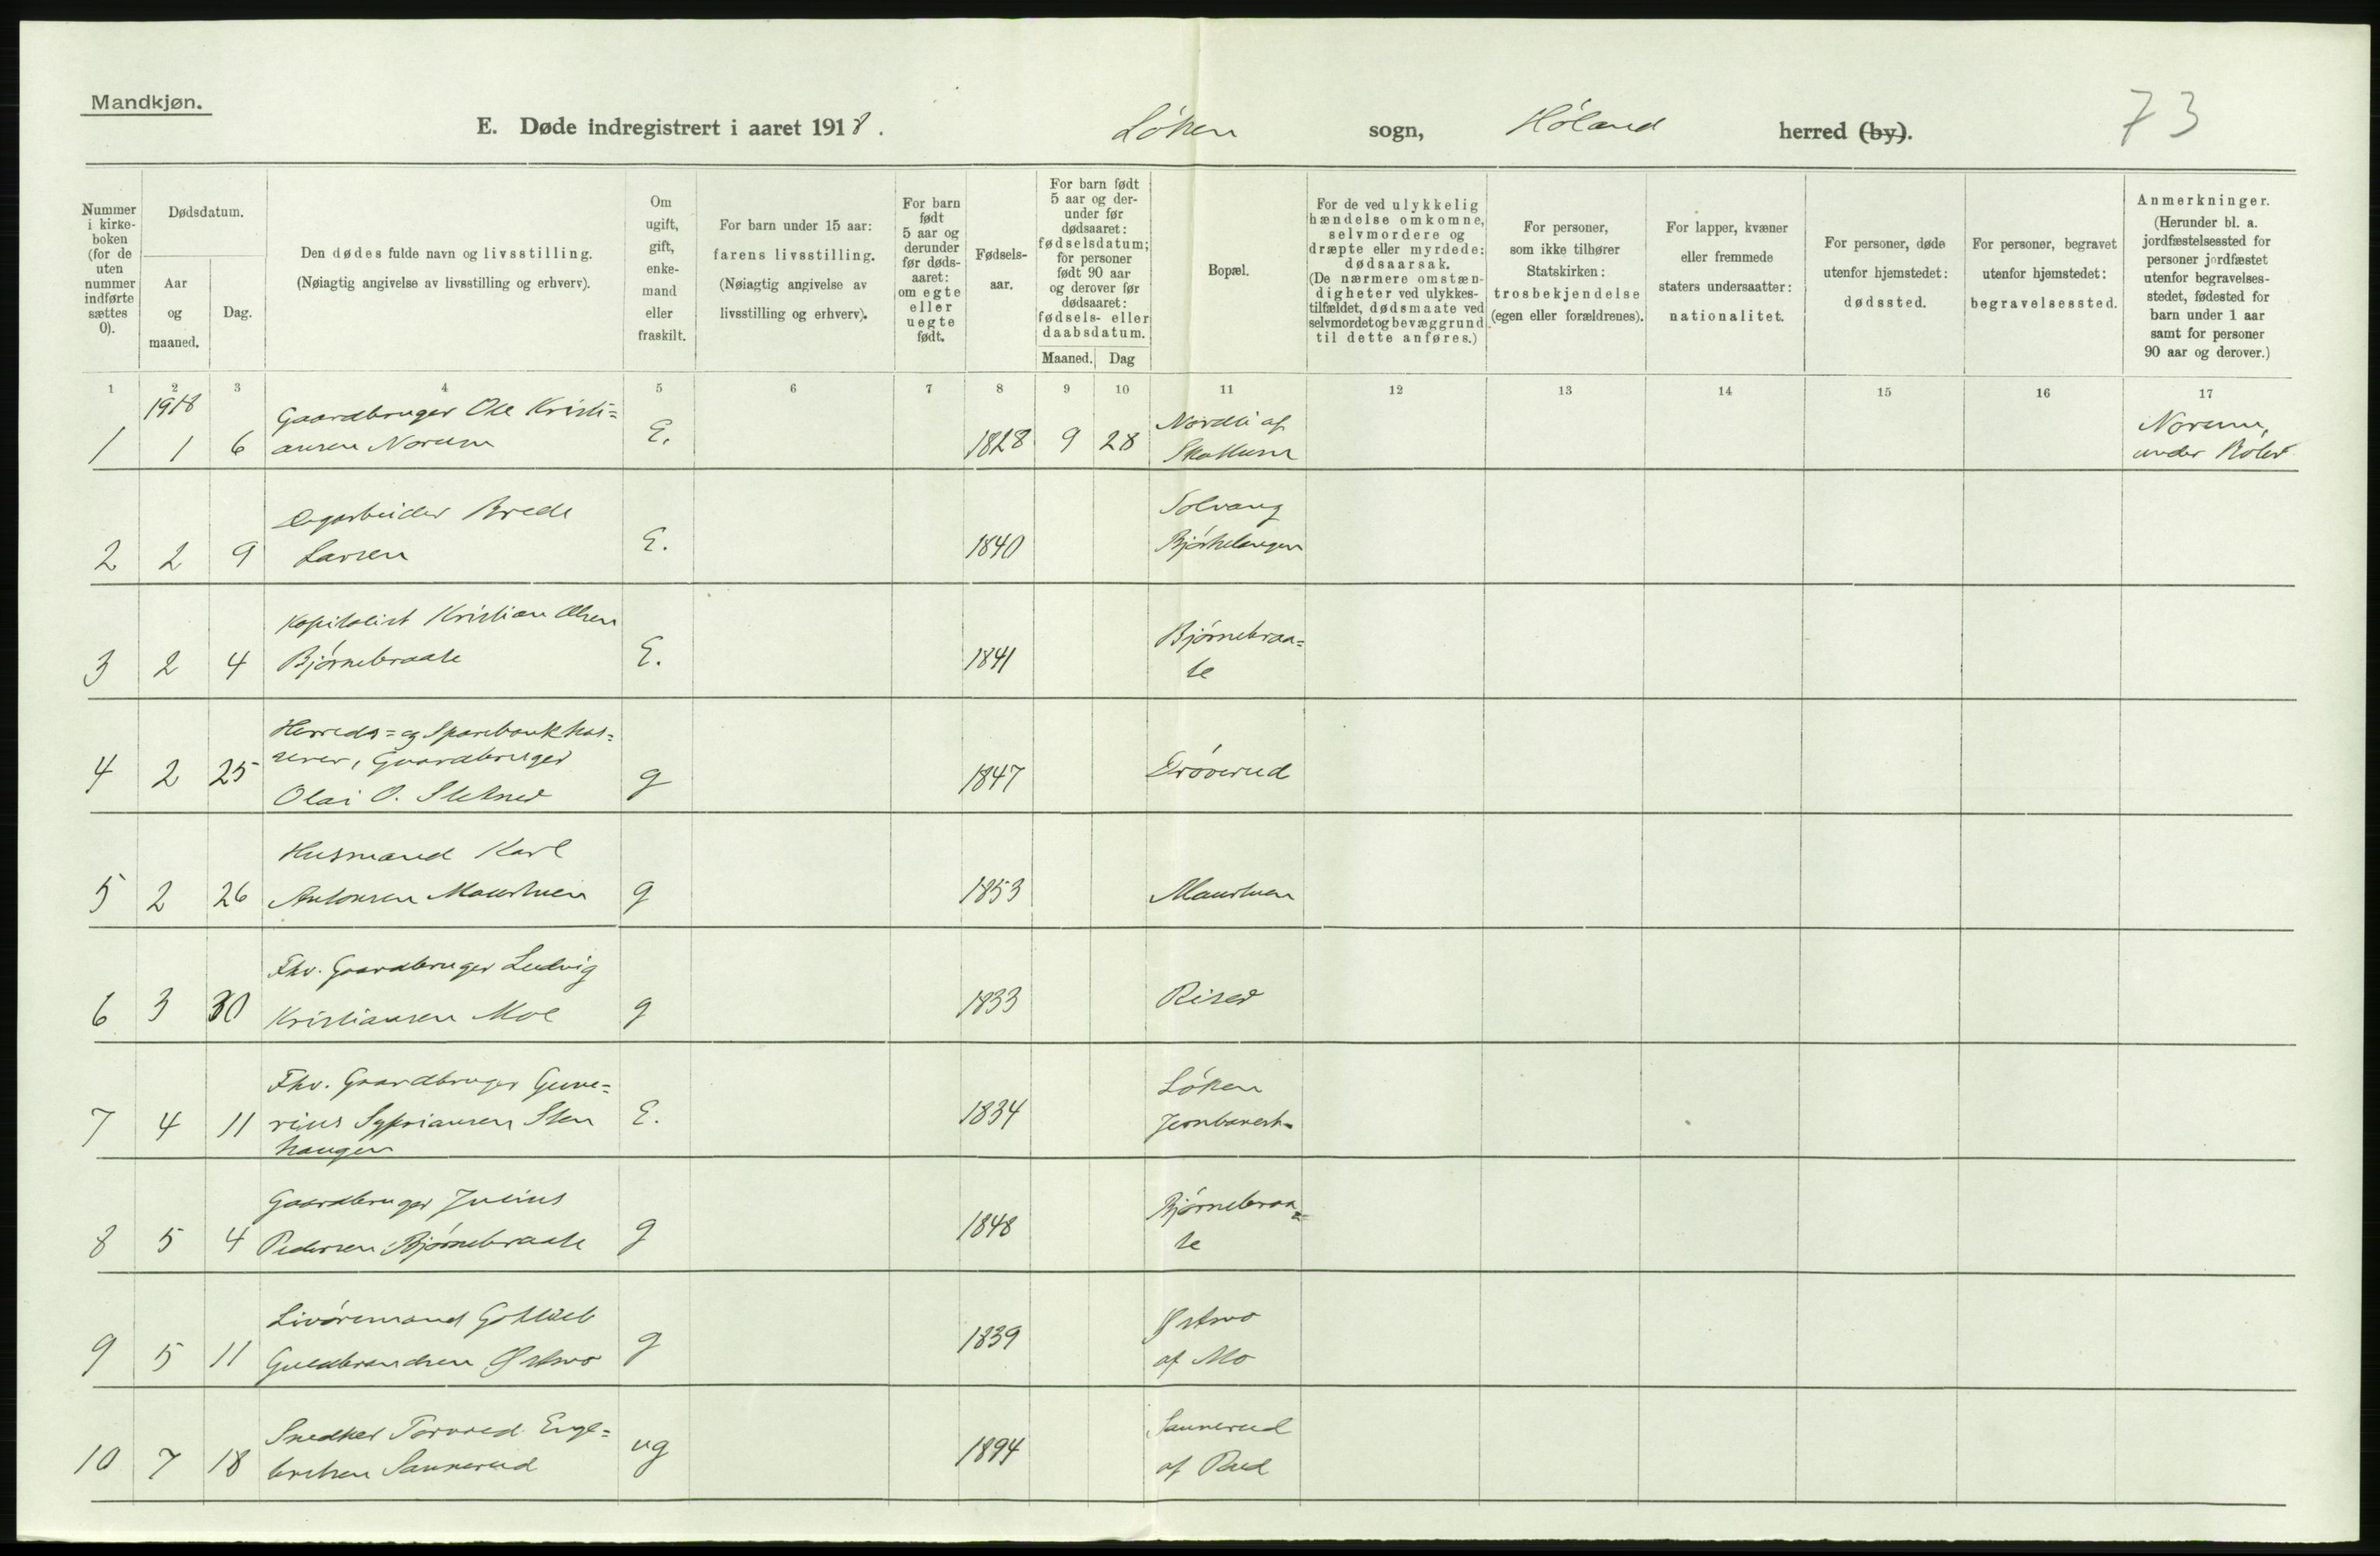 Mandkjøn.
E. Døde indregistrert i aaret 1918. Løken sogn, Høland herred (by). 73
Nummer i kirkeboken (for de uten nummer indførte sættes 0).
Dødsdatum.
Aar og maaned.
Dag.
Den dødes fulde navn og livsstilling.
(Nøiagtig angivelse av livsstilling og erhverv).
Om ugift, gift, enkemand eller fraskilt.
For barn under 15 aar: farens livsstilling.
(Nøiagtig angivelse av livsstilling og erhverv).
For barn født 5 aar og derunder før dødsaaret: om egte eller uegte født.
Fødselsaar.
For barn født 5 aar og derunder før dødsaaret: fødselsdatum; for personer født 90 aar og derover før dødsaaret: fødsels- eller daabsdatum.
Maaned. Dag
Bopæl.
For de ved ulykkelig hændelse omkomne, selvmordere og dræpte eller myrdede: dødsaarsak.
(De nærmere omstændigheter ved ulykkestilfældet, dødsmaate ved selvmordet og bevæggrund til dette anføres.)
For personer, som ikke tilhører Statskirken: trosbekjendelse (egen eller forældrenes).
For lapper, kvæner eller fremmede staters undersaatter: nationalitet.
For personer, døde utenfor hjemstedet: dødssted.
For personer, begravet utenfor hjemstedet: begravelsessted.
Anmerkninger.
(Herunder bl. a. jordfæstelsessted for personer jordfæstet utenfor begravelsesstedet, fødested for barn under 1 aar samt for personer 90 aar og derover.)
1 2 3 4 5 6 7 8 9 10 11 12 13 14 15 16 17
1918 Gaardbruger Ole Kristi= Nordli af Norum,
1 1 6 ansen Norum E. 1828 9 28 Skattum under
Dagarbeider Brede Solvang
2 2 9 Larsen E. 1840 Bjørkelangen
Kapitalist Kristian Olsen Bjørnebraa=
3 2 4 Bjørnebraate E. 1841 te
Herreds= og Sparebankkas=
4 2 25 serer, Gaardbruger g 1847 Drøverud
Olai O.
Husmand Karl
5 2 26 Antonsen Maurtuen g 1853 Maurtuen
Fhv. Gaardbruger Ludvig
6 3 30 Kristiansen Moe g 1833
Fhv. Gaardbruger Gune= Løken
7 4 11 rius Sypriansen Sten E. 1834 Jernbanest=
haugen
Gaardbruger Julius Bjørnebraa=
8 5 4 Pedersen Bjørnebraate g 1848 te
Livøremand Gottlieb Østmo
9 5 11 Guldbrandsen Østmo g 1839 af Mo
Snedker Torvred Enge= Saunerud
10 7 18 bretsen Saunerud ug 1894 af Rud